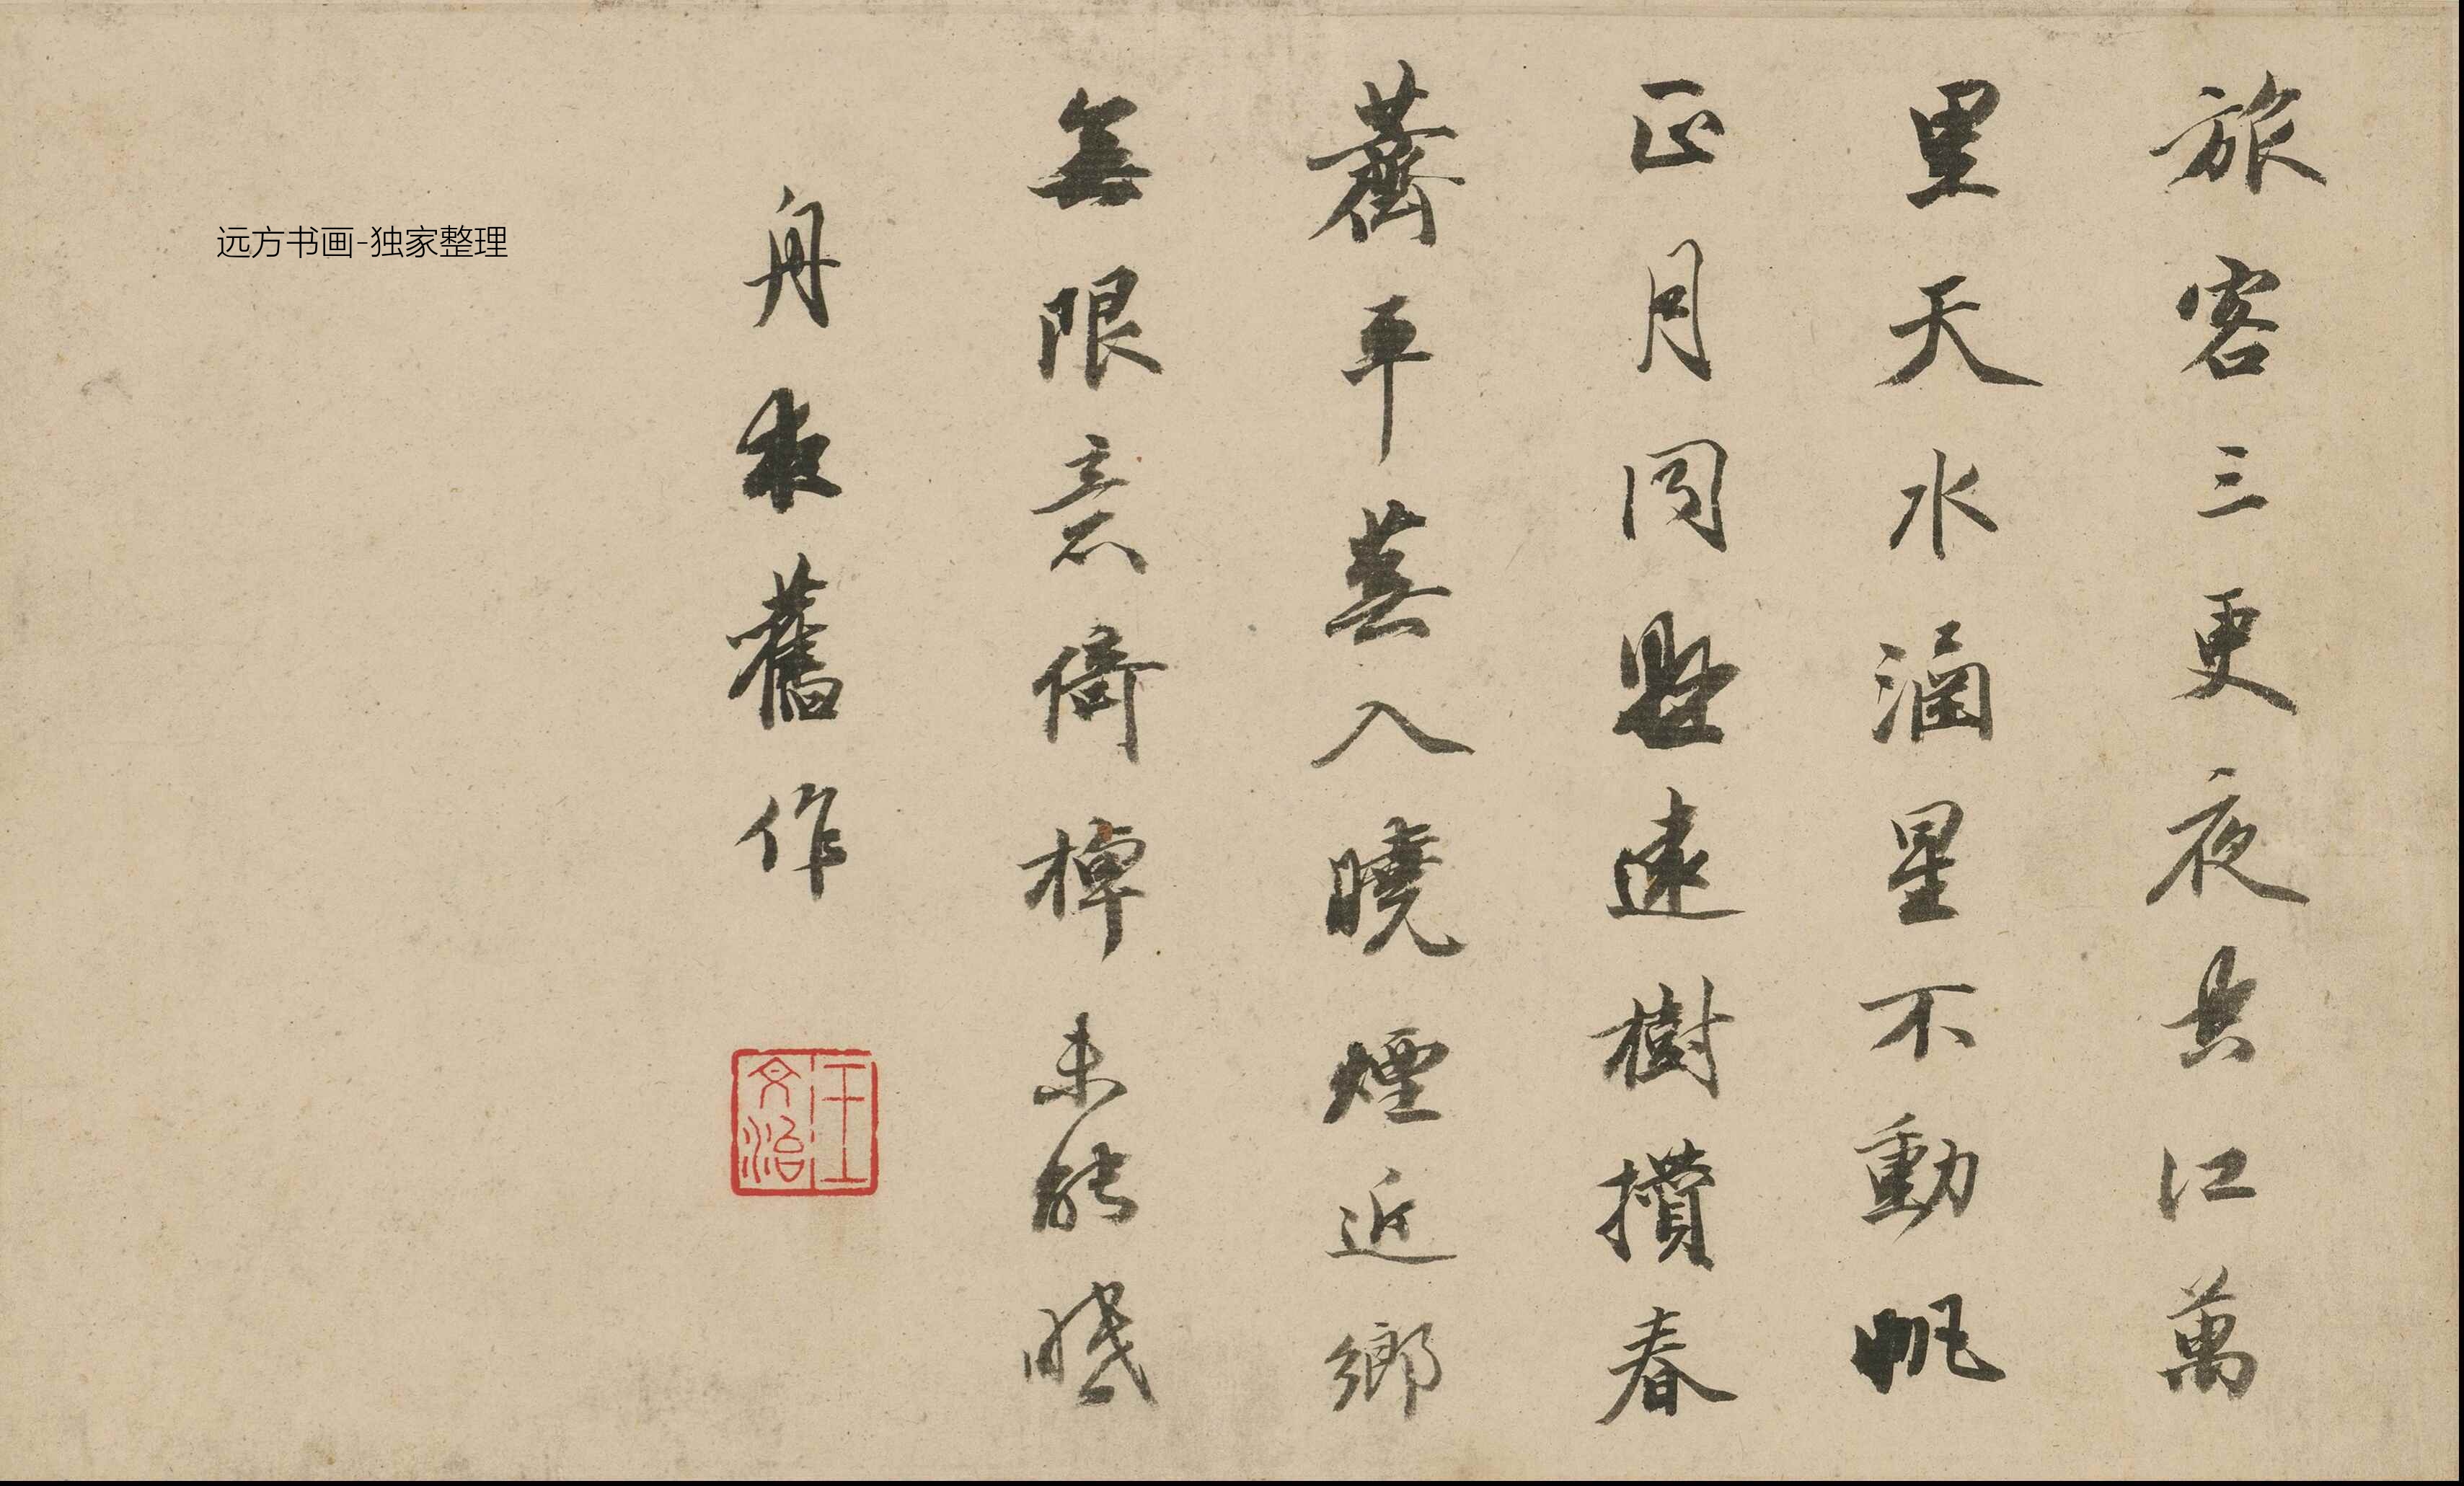 旅客三更夜江萬
里天水涵星不動帆
正月同懸遠樹攢春
薺平蕪入曉煙近鄉
無限意倚棹未能眠
舟夜舊作
王文治
远方书画-独家整理